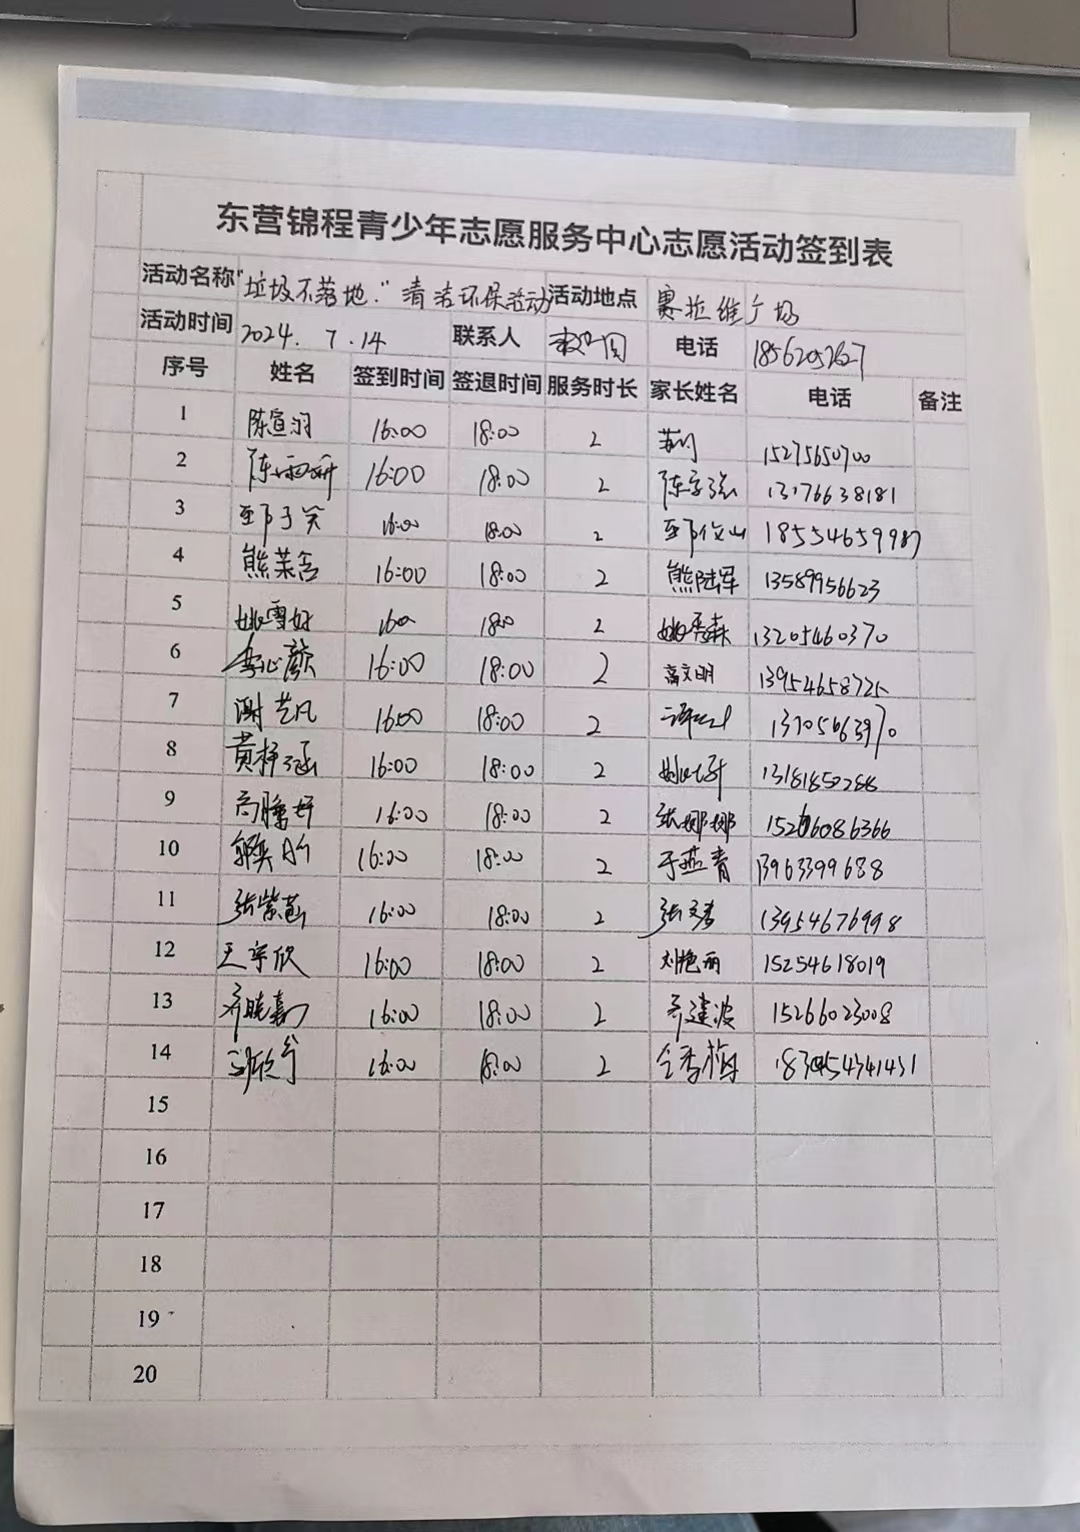 东营锦程青少年志愿服务中心志愿活动签到表
活动名称 "垃圾不落地." 清洁环保活动 活动地点 赛拉维广场
活动时间 2024. 7. 14 联系人 电话 18562052627
序号 姓名 签到时间 签退时间 服务时长 家长姓名 电话 备注
1 陈宣羽 16:00 18:00 2 15275650700
2 陈雨妍 16:00 18:00 2 13176638181
3 16:00 18:00 2
4 熊茉含 16:00 18:00 2 熊陆军 13589956623
5 姚雪妤 18:00 2 姚秀森 13205460370
6 16:00 18:00 2 高文明 13954658725
7 谢艺凡 16:00 18:00 2
8 16:00 18:00 2 13181850288
9 16:00 18:00 2 张娜娜 15266086366
10 16:00 18:00 2 于燕青 13963399688
11 张紫菡 16:00 18:00 2 13954676998
12 王宇欣 16:00 18:00 2 刘艳丽 15254618019
13 16:00 18:00 2 乔建波 15266023008
14 16:00 18:00 2 仝香梅
15
16
17
18
19
20